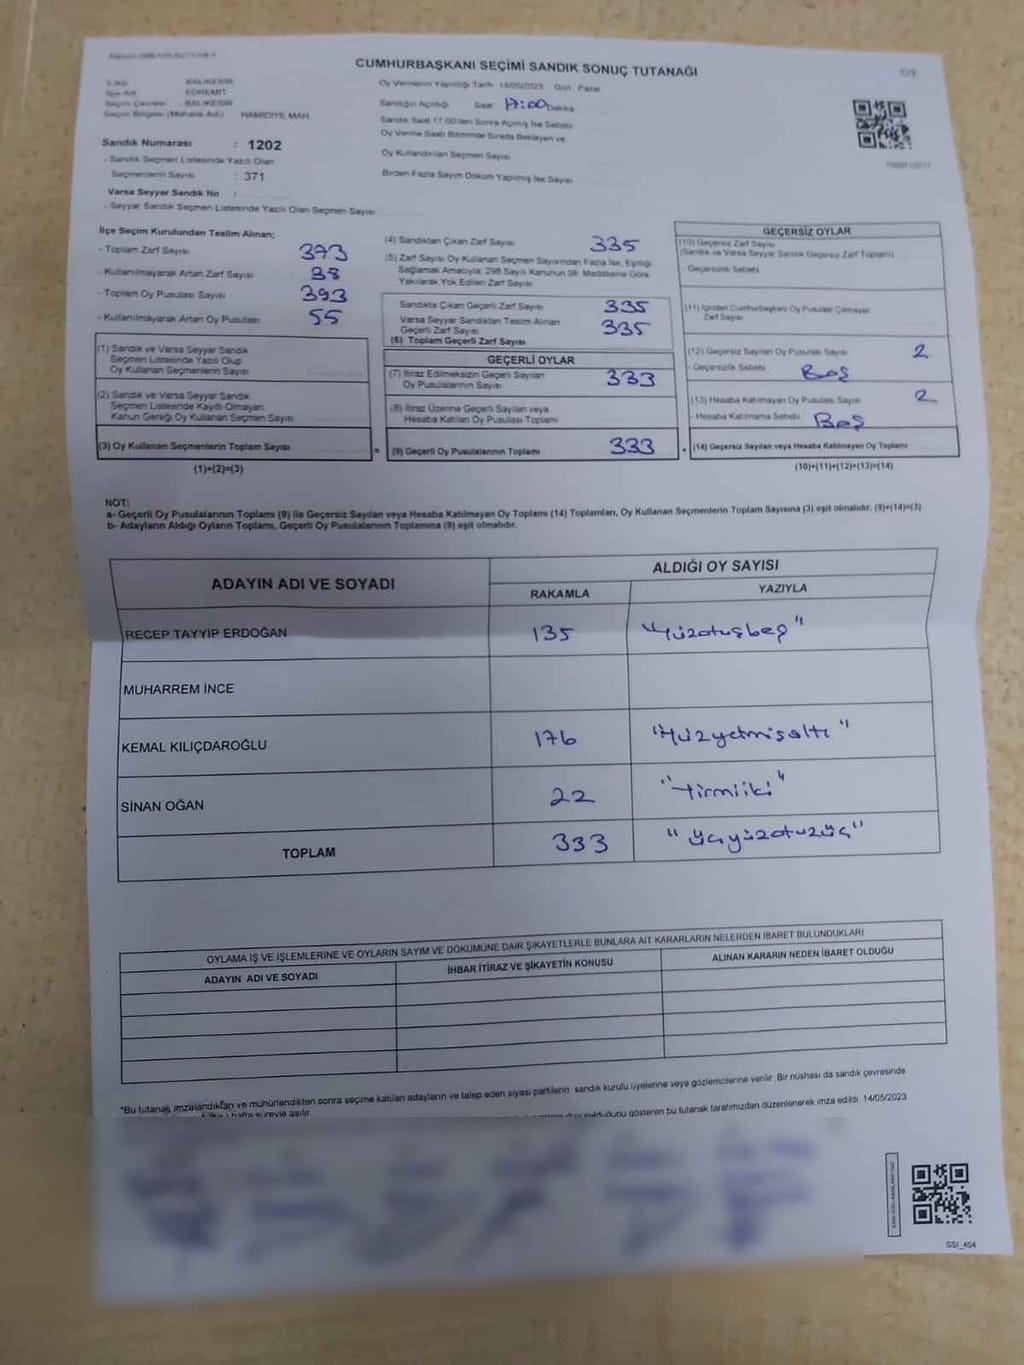 CUMHURBAŞKANI SEÇİMİ SANDIK SONUÇ TUTANAĞI
Oy Vermenin Yapıldığı Tarih 14/05/2023 Gün Pazar
Sandığın Açıldığı Saat 17:00 Dakika
Sandık Saat 17.00'den Sonra Açılmış İse Sebebi
Oy Verme Saati Bitiminde Sırada Bekleyen ve
Oy Kullandırılan Seçmen Sayısı
Birden Fazla Sayım Döküm Yapılmış İse Sayısı
İl Adı BALIKESİR
İlçe Adı EDREMİT
Seçim Çevresi BALIKESİR
Seçim Bölgesi (Mahalle Adı) HAMİDİYE MAH.
Sandık Numarası : 1202
- Sandık Seçmen Listesinde Yazılı Olan
Seçmenlerin Sayısı : 371
Varsa Seyyar Sandık No :
- Seyyar Sandık Seçmen Listesinde Yazılı Olan Seçmen Sayısı
İlçe Seçim Kurulundan Teslim Alınan;
- Toplam Zarf Sayısı 373
- Kullanılmayarak Artan Zarf Sayısı 38
- Toplam Oy Pusulası Sayısı 393
- Kullanılmayarak Artan Oy Pusulası 55
(1) Sandık ve Varsa Seyyar Sandık
Seçmen Listesinde Yazılı Olup
Oy Kullanan Seçmenlerin Sayısı
(2) Sandık ve Varsa Seyyar Sandık
Seçmen Listesinde Kayıtlı Olmayan
Kanun Gereği Oy Kullanan Seçmen Sayısı
(3) Oy Kullanan Seçmenlerin Toplam Sayısı
(1)+(2)=(3)
(4) Sandıktan Çıkan Zarf Sayısı 335
(5) Zarf Sayısı Oy Kullanan Seçmen Sayısından Fazla İse, Eşitliği
Sağlamak Amacıyla, 298 Sayılı Kanunun 98. Maddesine Göre
Yakılarak Yok Edilen Zarf Sayısı
Sandıkta Çıkan Geçerli Zarf Sayısı 335
Varsa Seyyar Sandıktan Teslim Alınan
Geçerli Zarf Sayısı 335
(6) Toplam Geçerli Zarf Sayısı
GEÇERLİ OYLAR
(7) İtiraz Edilmeksizin Geçerli Sayılan
Oy Pusulalarının Sayısı 333
(8) İtiraz Üzerine Geçerli Sayılan veya
Hesaba Katılan Oy Pusulası Toplamı
= (9) Geçerli Oy Pusulalarının Toplamı 333
GEÇERSİZ OYLAR
(10) Geçersiz Zarf Sayısı
(Sandık ve Varsa Seyyar Sandık Geçersiz Zarf Toplamı)
- Geçersizlik Sebebi
(11) İçinden Cumhurbaşkanı Oy Pusulası Çıkmayan
Zarf Sayısı
(12) Geçersiz Sayılan Oy Pusulası Sayısı 2
- Geçersizlik Sebebi Boş
(13) Hesaba Katılmayan Oy Pusulası Sayısı 2
- Hesaba Katılmama Sebebi Boş
+ (14) Geçersiz Sayılan veya Hesaba Katılmayan Oy Toplamı
(10)+(11)+(12)+(13)=(14)
NOT:
a- Geçerli Oy Pusulalarının Toplamı (9) ile Geçersiz Sayılan veya Hesaba Katılmayan Oy Toplamı (14) Toplamları, Oy Kullanan Seçmenlerin Toplam Sayısına (3) eşit olmalıdır. (9)+(14)=(3)
b- Adayların Aldığı Oyların Toplamı, Geçerli Oy Pusulalarının Toplamına (9) eşit olmalıdır.
ADAYIN ADI VE SOYADI ALDIĞI OY SAYISI
RAKAMLA YAZIYLA
RECEP TAYYIP ERDOĞAN 135 "Yüzotuzbeş"
MUHARREM İNCE
KEMAL KILIÇDAROĞLU 176 "Yüzyetmişaltı"
SİNAN OĞAN 22 "Yirmiiki"
TOPLAM 333 "üçyüzotuzüç"
OYLAMA İŞ VE İŞLEMLERİNE VE OYLARIN SAYIM VE DÖKÜMÜNE DAİR ŞİKAYETLERLE BUNLARA AİT KARARLARIN NELERDEN İBARET BULUNDUKLARI
ADAYIN ADI VE SOYADI İHBAR İTİRAZ VE ŞİKAYETİN KONUSU ALINAN KARARIN NEDEN İBARET OLDUĞU
*Bu tutanak imzalandıktan ve mühürlendikten sonra seçime katılan adayların ve talep eden siyasi partilerin sandık kurulu üyelerine veya gözlemcilerine verilir. Bir nüshası da sandık çevresinde
hafta süreyle asılır.
olduğunu gösteren bu tutanak tarafımızdan düzenlenerek imza edildi. 14/05/2023
SSI_404